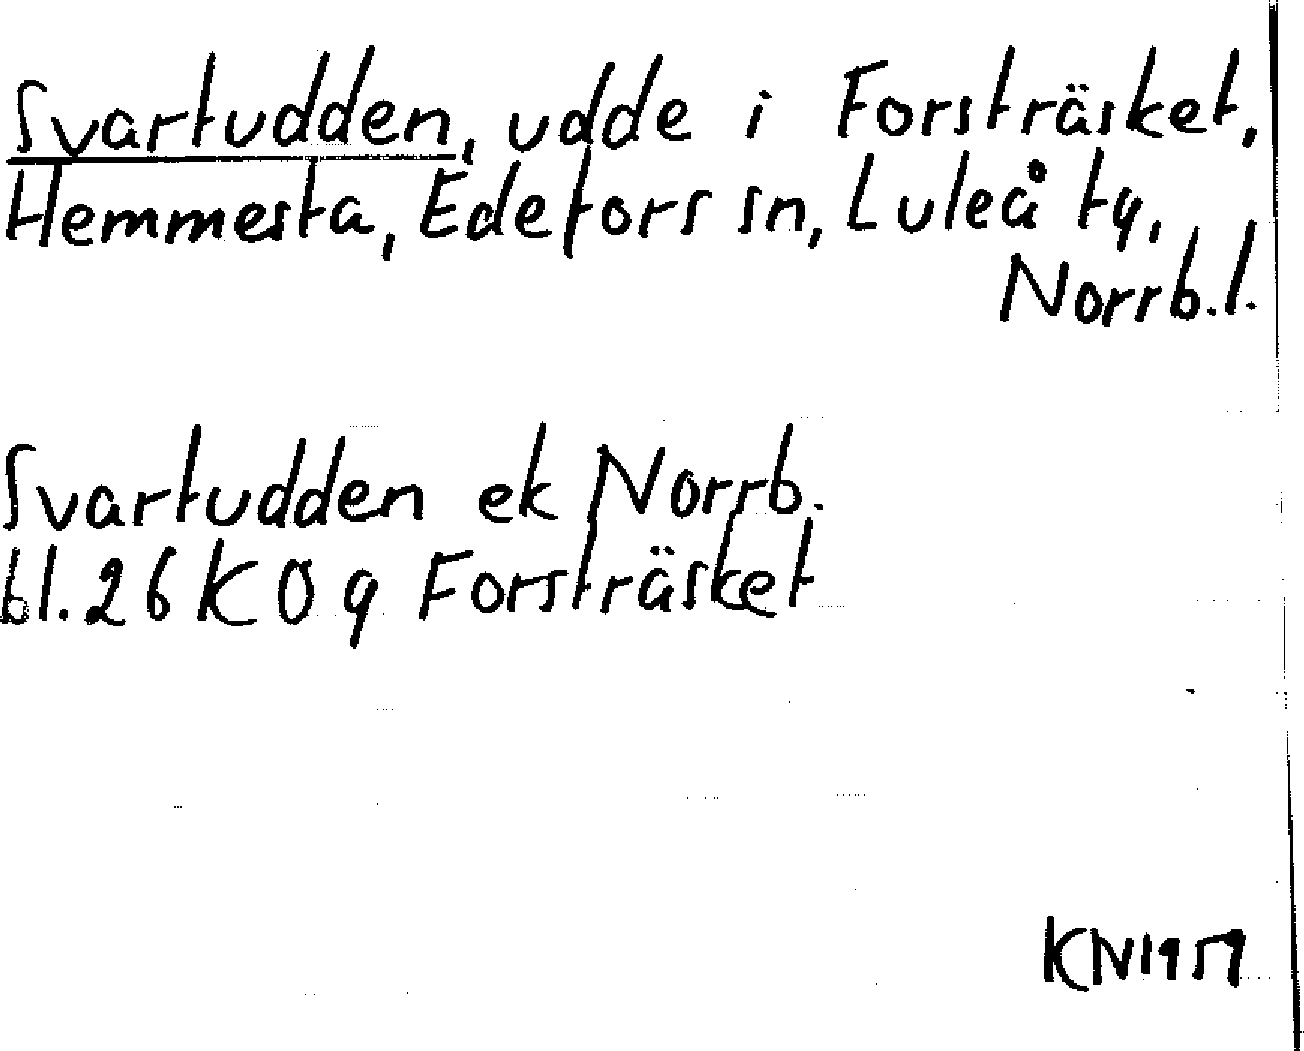 Svartudden, udde i Forsträsket,
Hemmesta, Edefors sn, Luleå ty,
Norrb.l.
Svartudden ek Norrb.
bl.26 K O g Forsträsket